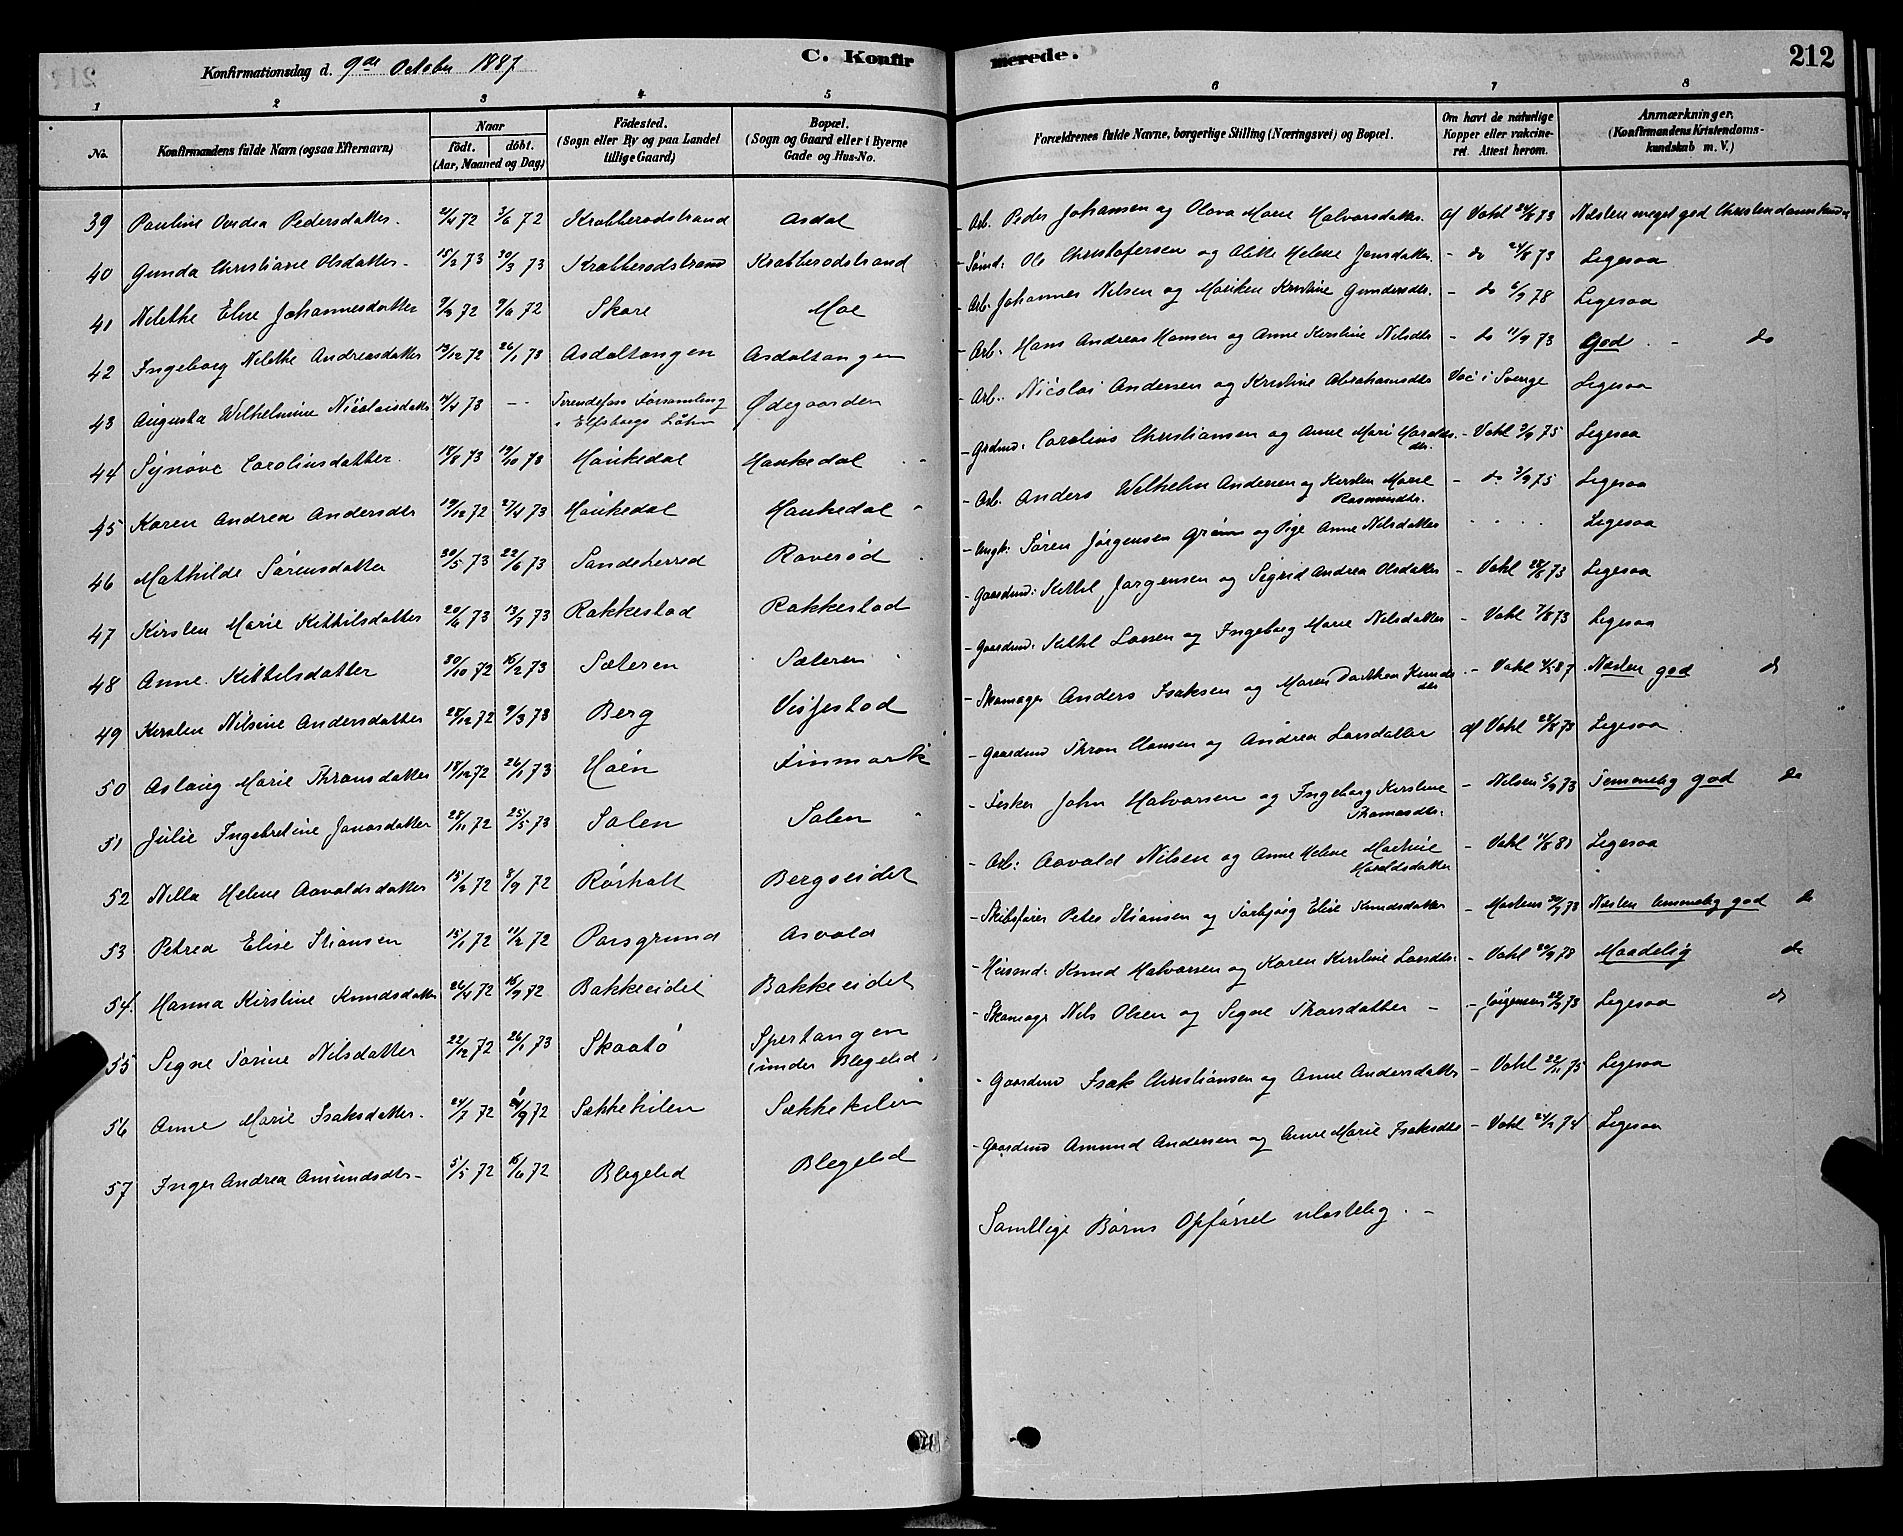 Konfirmationsdag d. 9de October 1887. C. Konfirmerede. 212
1 2 3 4 5 6 7 8
No. Konfirmandens fulde Navn (ogsaa Efternavn) Naar født. døbt. (Aar, Maaned og Dag) Fødested. (Sogn eller By og paa Landet tillige Gaard) Bopæl. (Sogn og Gaard eller i Byerne Gade og Hus-No. Forældrenes fulde Navne, borgerlige Stilling (Næringsvei) og Bopæl. Om havt de naturlige Kopper eller vakcineret. Attest herom. Anmærkninger. (Konfirmandens Kristendomskundskab m. V.)
39 Pauline Andrea Pedersdatter. 2/4 72 3/6 72 Krabberødstrand Asdal - Arb. Peder Johansen og Olava Marie Halvorsdatter. af Vahl 24/8 73 Næsten meget god Christendomskundsk
40 Gunda Christiane Olsdatter - 15/2 73 30/3 73 Krabberødstrand Krabberødstrand - Sømd: Ole Christofersen og Helene Jensdatter. - do 24/8 73 Ligesaa
41 Nilette Elise Johannesdatter 9/6 72 Skare Moe - Arb. Johannes Nilsen og Maiken Kristine Gundersdtr. - do 6/9 78 Ligesaa
42 Ingeborg Nilette Andreasdatter 13/12 72 26/1 73 Asdaltangen Asdaltangen - Arb: Hans Andreas Hansen og Anne Kirstine Nilsdtr - do 11/9 73 God. - do
43 Augusta Wilhelmine Nicolaisdatter 4/4 73 - - Forsamling i Elfsborgs Lähn Ødegaarden - Arb.. Nicolai Andersen og Kristine Abrahamsdtr Vac i Sverige Ligesaa
44 Synøve Carolinsdatter. 18/8 73 19/10 73 Haukedal Haukedal - Grdmd: Carolius Christiansen og Anne Mari dtr. - Vahl 3/9 75 Ligesaa
45 Karen Andrea Andersdtr 19/12 72 27/4 73 Haukedal Haukedal - Arb. Anders Wilhelm Andersen og Kirsten Marie Rasmusdtr. - do 3/9 75 Ligesaa
46 Mathilde Sørensdatter 30/5 73 22/6 73 Sandeherred Raverød - Ungk: Søren Jørgensen Grøim og Pige Anne Nilsdatter . . . . Ligesaa
47 Kirsten Marie Kittilsdatter 20/6 73 13/7 73 Rakkestad Rakkestad - Gaardmd: Kittil Jørgensen og Sigrid Andrea Olsdatter - Vahl 28/8 73 Ligesaa
48 Anne Kittilsdatter 30/10 72 16/2 73 Sæteren Sæteren - Gaardmd: Kittil Larsen og Ingeborg Marie Nilsdatter - Vahl 7/8 73 Ligesaa
49 Kirsten Nilsine Andersdatter 28/12 72 9/3 73 Berg Visjestad - Skomager Anders Isaksen og Maren Dorthea Knudsdtr - Vahl 87 Næsten god do
50 Aslaug Marie Thronsdatter 18/12 72 26/1 73 Høen Finmark - Gaardmd Thron Hansen og Andrea Larsdatter af Vahl 28/8 73 Ligesaa
51 Julie Ingebretine Jonasdatter 28/11 72 25/5 73 Salen Salen - Fisker John Halvorsen og Ingeborg Kirstine Thomasdtr. - Nilsen 5/9 73 Temmelig god do
52 Nilla Helene Aavaldsdatter 15/2 72 8/9 72 Rørholt Bergseidet - Arb: Aavald Nilsen og Anne Helene Martine Haraldsdatter - Vahl 11/8 81 Ligesaa
53 Petrea Elise Stiansen 15/1 72 11/2 72 Porsgrund Asvald - Skibsfører Peter Stiansen og Torbjørg Elise Knudsdatter - Martens 78 Næsten temmelig god do
54. Hanna Kirstine Knudsdatter 26/4 72 15/9 72 Bakkeeidet Bakkeeidet - Husmd: Knud Halvorsen og Karen Kirstine Larsdtr. - Vahl 20/9 78 Maadelig do
55 Signe Torine Nilsdatter 22/12 72 26/1 73 Skaatø Spertangen (under Blegelid - Skomagr Nils Olsen og Signe Thorsdatter - - Jørgensen 73 Ligesaa do
56 Anne Marie Isaksdatter. 24/7 72 /9 72 Sækkekilen Sækkekilen - Gaardmd Isak Christiansen og Anne Andersdatter - Vahl 22/11 75 Ligesaa
57 Inger Andrea Amundsdtr - 5/5 72 16/6 72 Blegelid Blegelid - Gaardmd Amund Andersen og Anne Marie Isaksdtr - Vahl 74 Ligesaa
Samtlige Børns Opførsel ulastelig. -